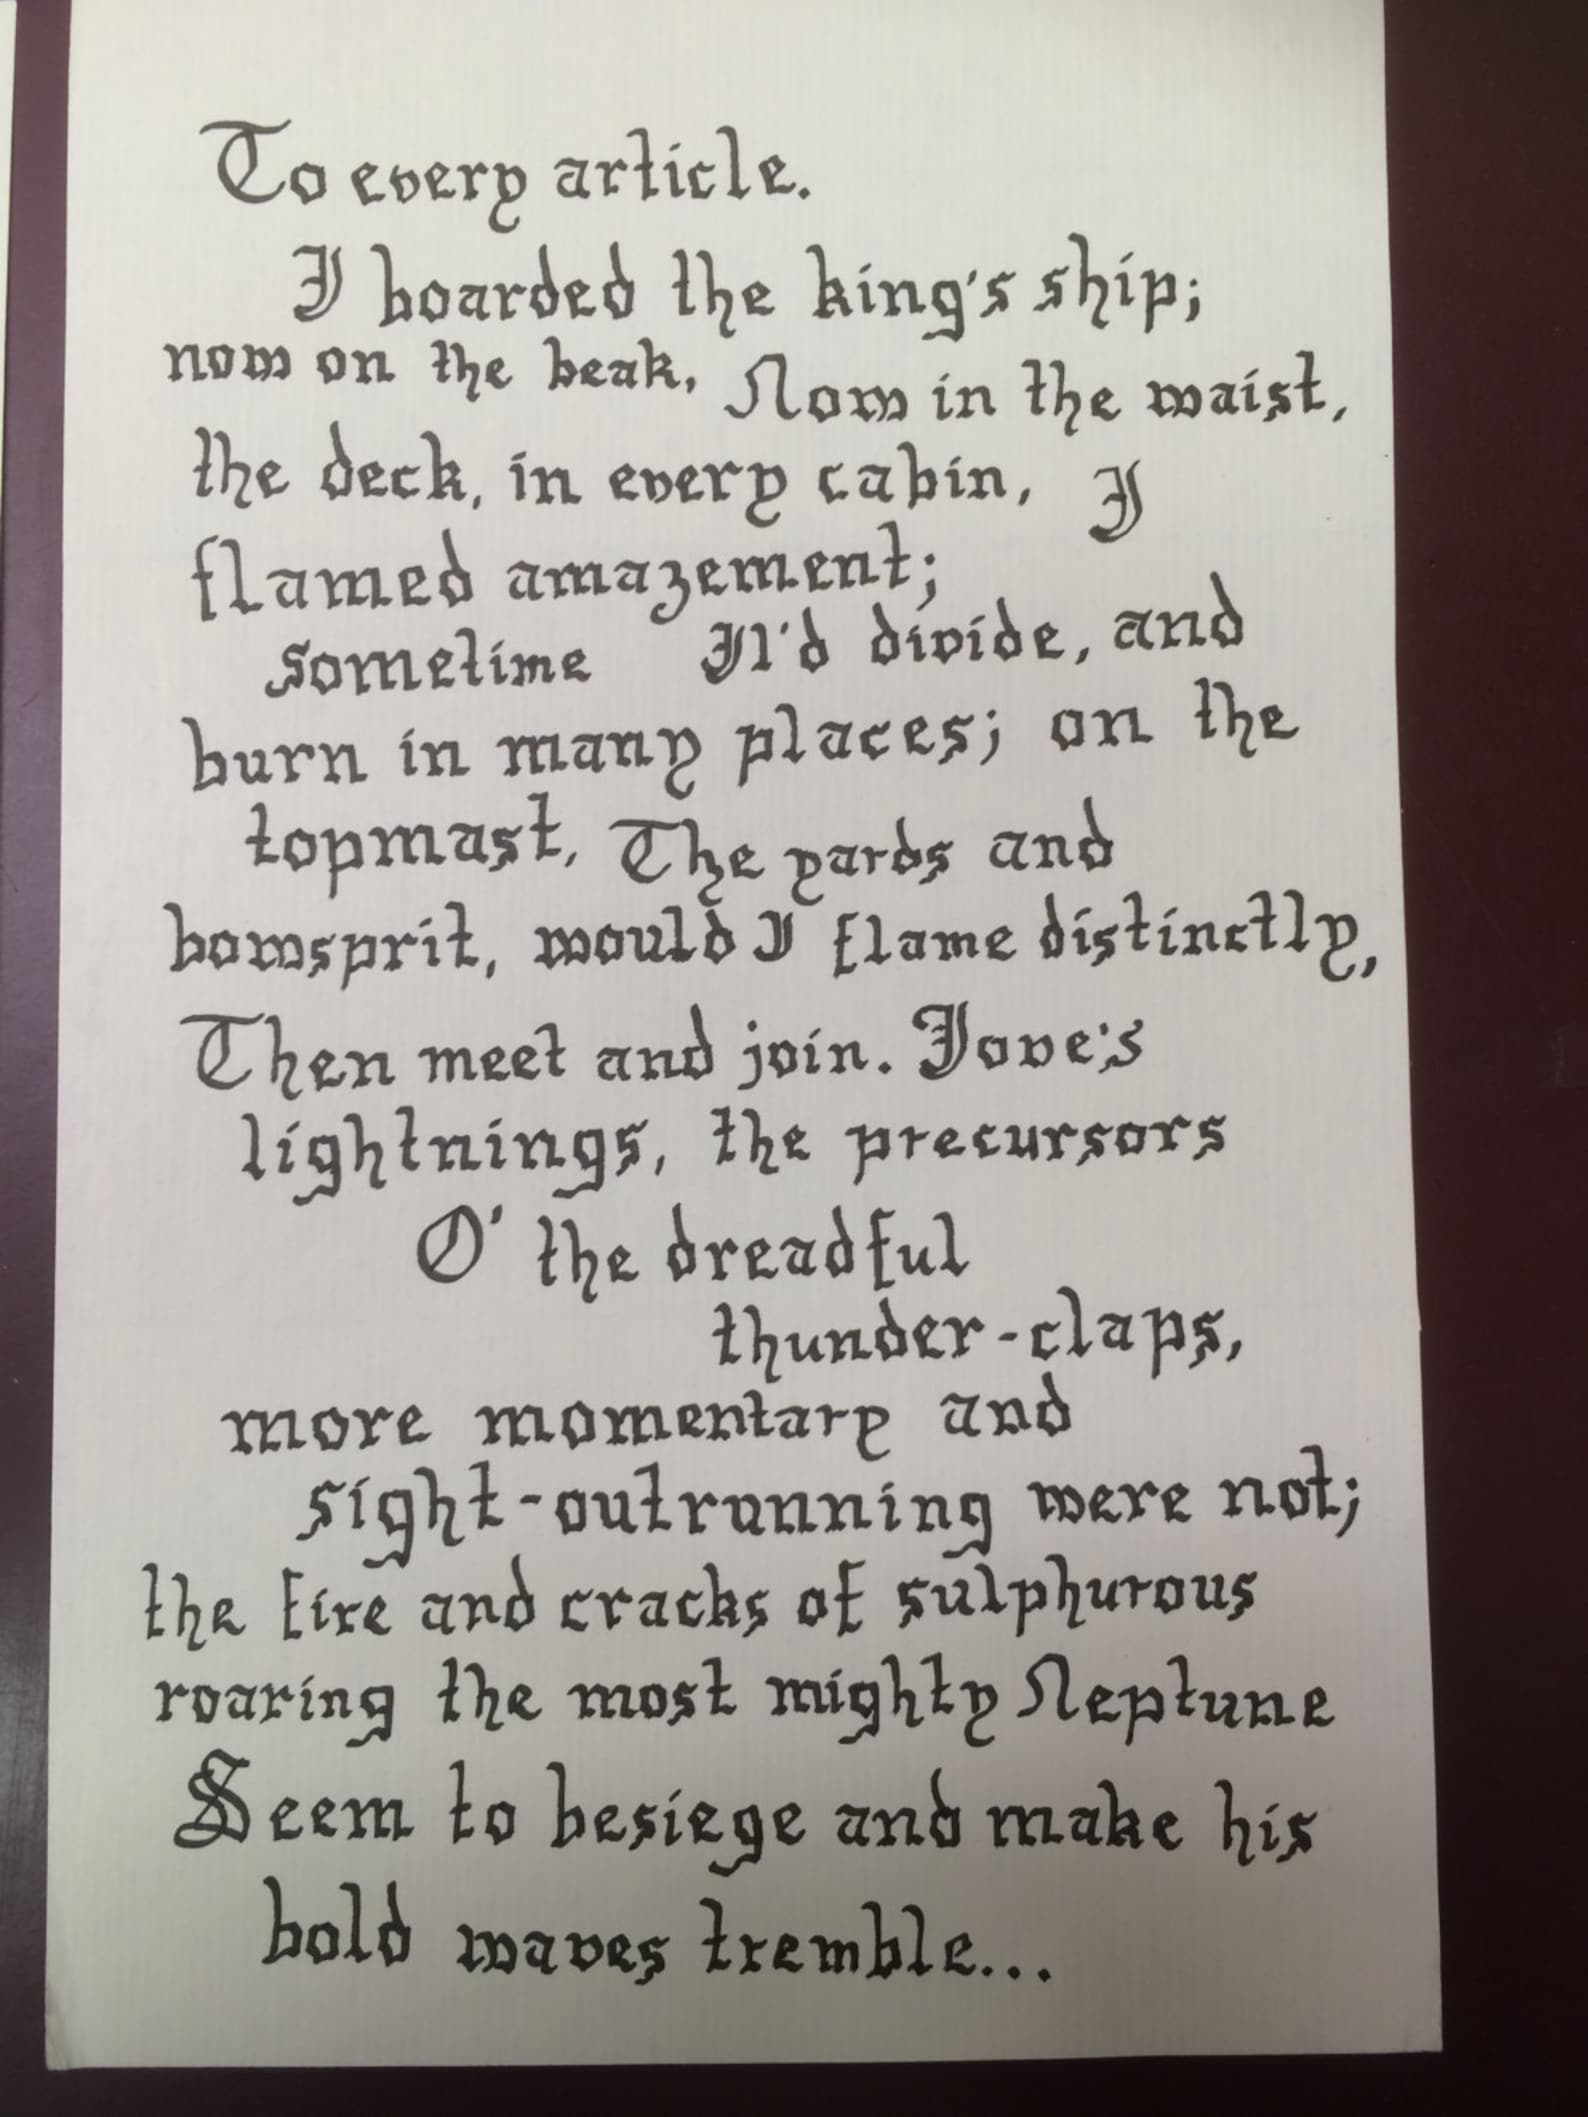 To every article.
I boarded the king's ship;
now on the beak, Now in the waist,
the deck, in every cabin, I
flamed amazement;
sometime Il'd divide, and
burn in many places; on the
topmast, The yards and
bowsprit, would I flame distinctly,
Then meet and join. Jove's
lightnings, the precursors
O' the dreadful
thunder-claps,
more momentary and
sight-outrunning were not;
the fire and cracks of sulphurous
roaring the most mighty Neptune
Seem to besiege and make his
bold waves tremble...